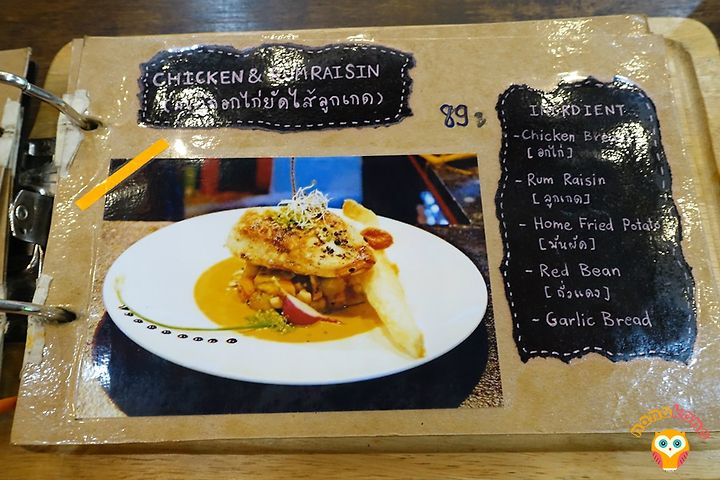 CHICKEN & RUMRAISIN
อกไก่ยัดไส้ลูกเกด)
89.-
INGRDIENT
- Chicken Breast
[อกไก่]
- Rum Raisin
[ลูกเกด]
- Home Fried Potato
[มันผัด]
- Red Bean
[ถั่วแดง]
- Garlic Bread